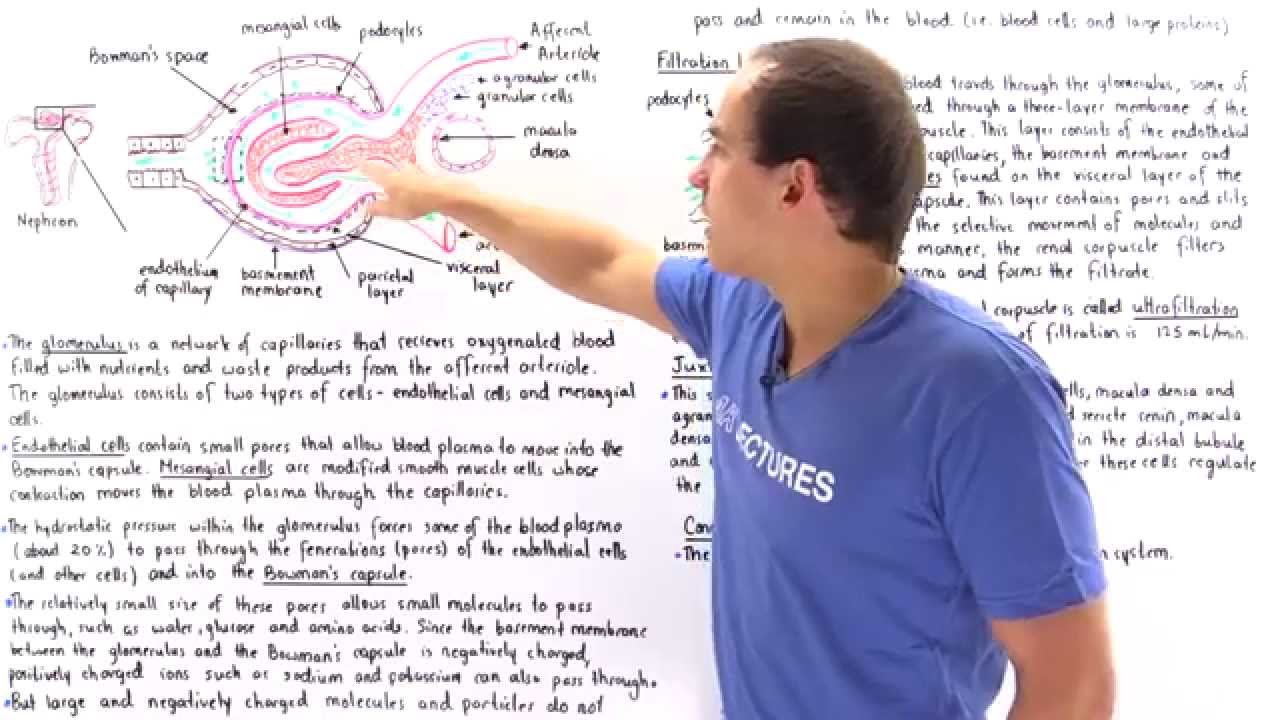 mesangial cells
podocytes
Bowman's space
Afferent
Arteriole
agranular cells
granular cells
macula
densa
Nephron
endothelium
of capillary
basmement
membrane
parietal
layer
visceral
layer
• The glomerulus is a network of capillaries that recieves oxygenated blood
filled with nutrients and waste products from the afferent arteriole.
The glomerulus consists of two types of cells - endothelial cells and mesangial
cells.
• Endothelial cells contain small pores that allow blood plasma to move into the
Bowman's capsule. Mesangial cells are modified smooth muscle cells whose
contraction moves the blood plasma through the capillaries.
• The hydrostatic pressure within the glomerulus forces some of the blood plasma
(about 20%) to pass through the fenerations (pores) of the endothelial cells
(and other cells) and into the Bowman's capsule.
• The relatively small size of these pores allows small molecules to pass
through, such as water, glucose and amino acids. Since the basement membrane
between the glomerulus and the Bowman's capsule is negatively charged,
positively charged ions such as sodium and potassium can also pass through.
• But large and negatively charged molecules and particles do not
pass and remain in the blood (i.e. blood cells and large proteins)
Filtration
podocytes
blood travels through the glomerulus, some of
through a three-layer membrane of the
This layer consists of the endothelial
capillaries, the basement membrane and
found on the visceral layer of the
This layer contains pores and slits
the selective movemmt of molecules and
manner, the renal corpuscle filters
and forms the filtrate.
corpuscle is called ultrafiltration
of filtration is 125 mL/min.
• This
macula densa and
renin, macula
in the distal bubule
and
these cells regulate
the
• The
system.
LECTURES